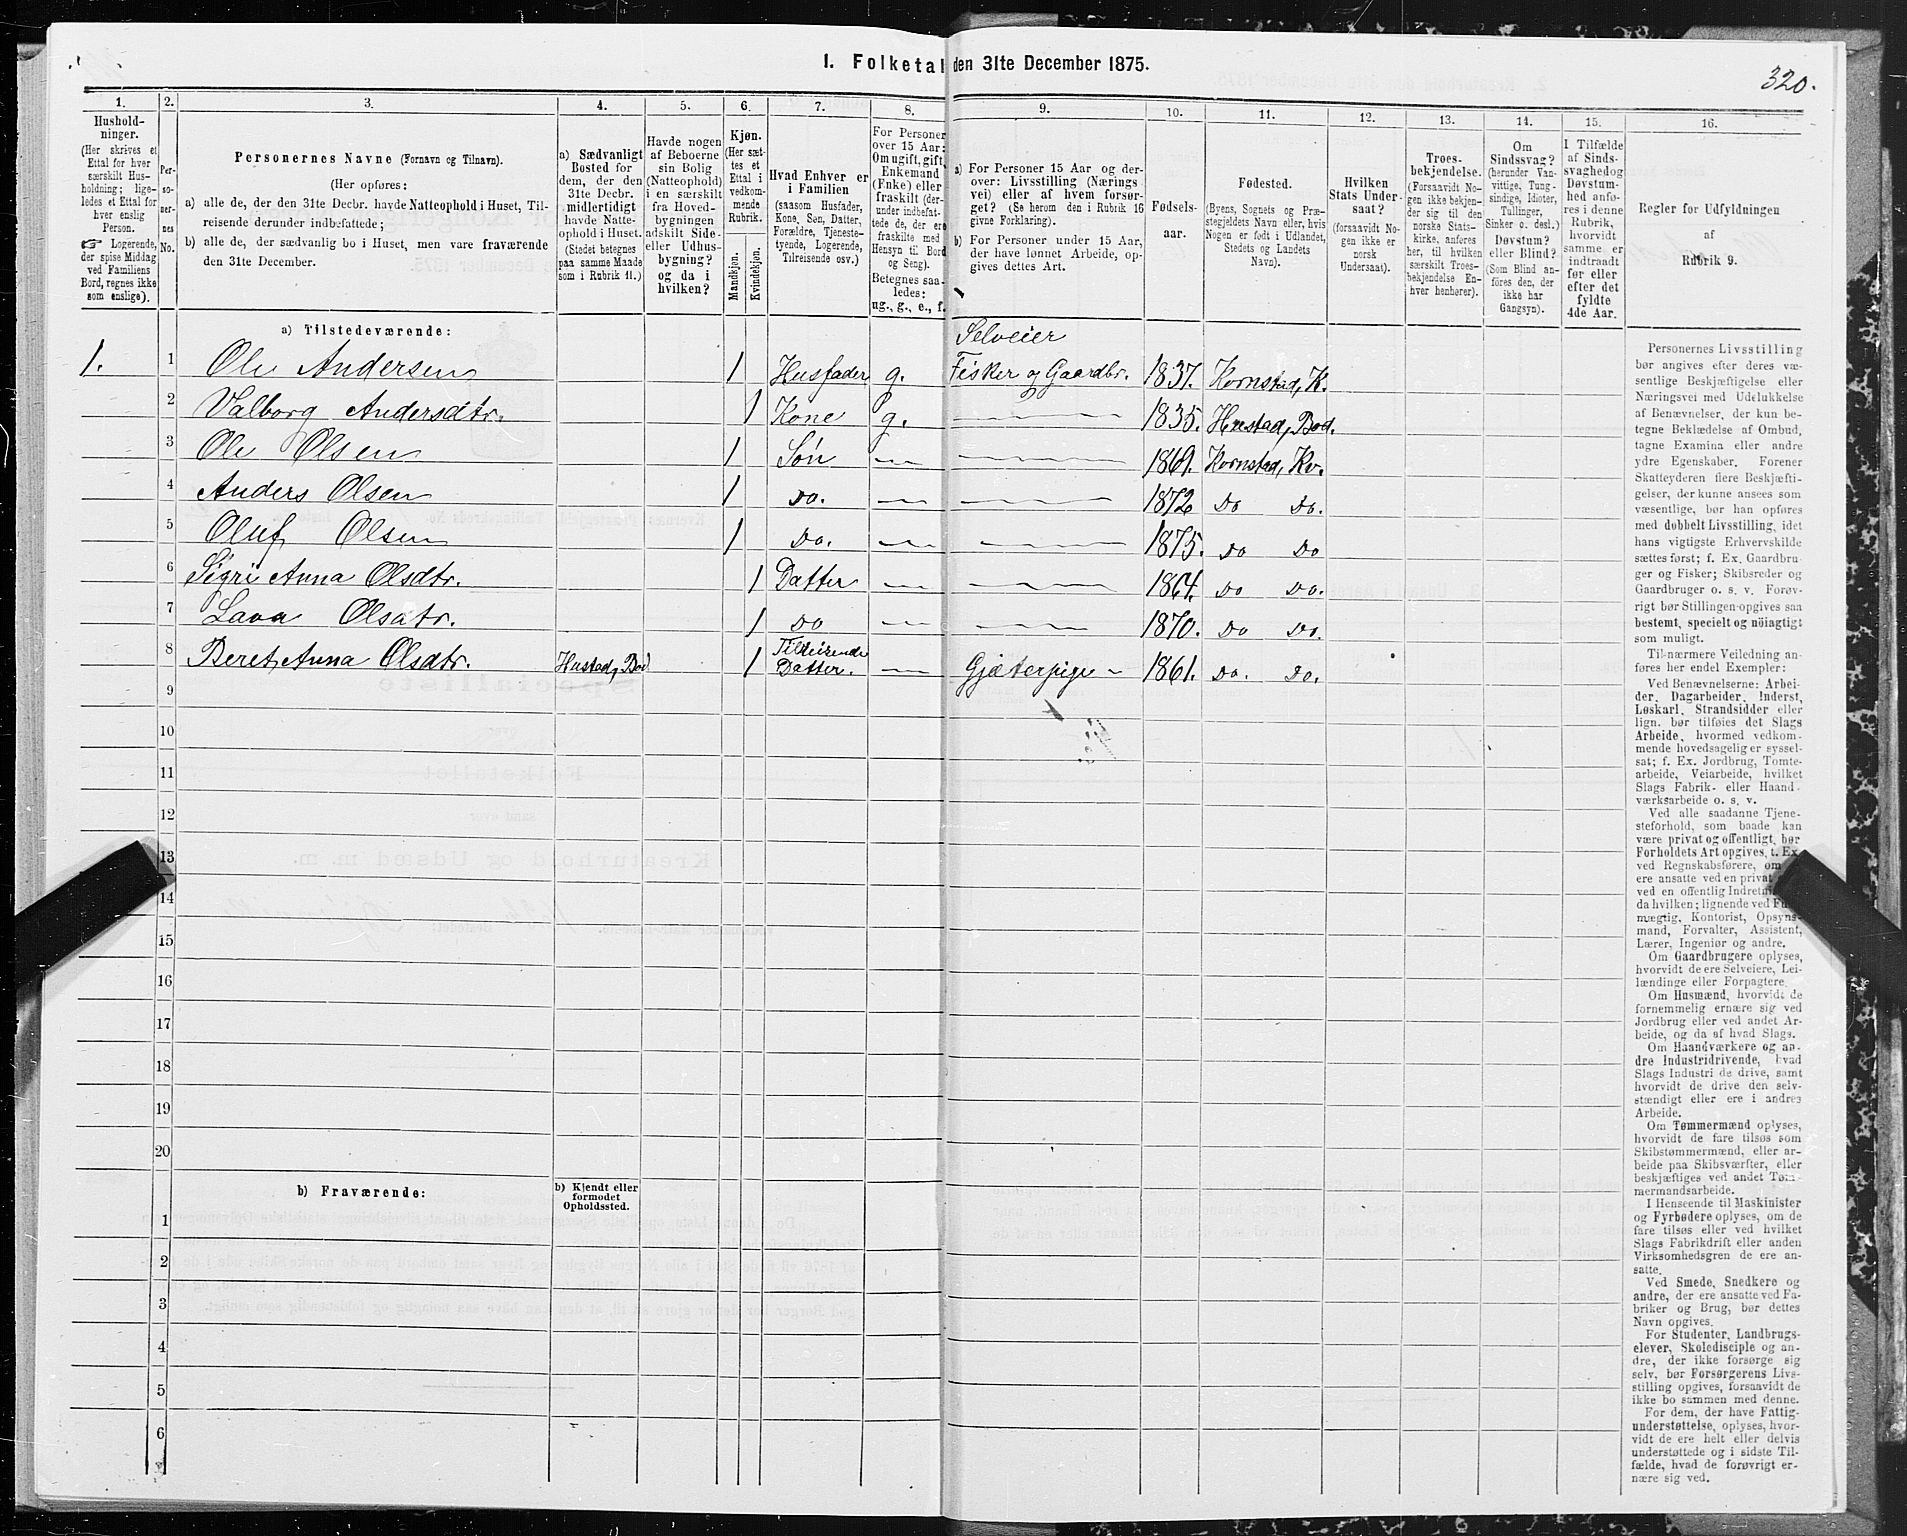 I. Folketal den 31te December 1875.
320.
1.
2.
3.
4.
5.
6.
7.
8.
9.
10.
11.
12.
13.
14.
15.
16.
Hushold-
ninger.
(Her skrives et
Ettal for hver
særskilt Hus-
holdning; lige-
ledes et Ettal for
hver enslig
Person.
☞ Logerende,
der spise Middag
ved Familiens
Bord, regnes ikke
som enslige).
Per-
so-
ner-
nes
No.
Personernes Navne (Fornavn og Tilnavn).
(Her opføres:
a) alle de, der den 31te Decbr. havde Natteophold i Huset, Til-
reisende derunder indbefattede;
b) alle de, der sædvanlig bo i Huset, men vare fraværende
den 31te December.
a) Sædvanligt
Bosted for
dem, der den
31te Decbr.
midlertidigt
havde Natte-
ophold i Huset.
(Stedet betegnes
paa samme Maade
som i Rubrik 11.)
Havde nogen
af Beboerne
sin Bolig
(Natteophold)
i en særskilt
fra Hoved-
bygningen
adskilt Side-
eller Udhus-
bygning?
og da i
hvilken?
Kjøn.
(Her sæt-
tes et
Ettal i
vedkom-
mende
Rubrik.
Mandkjøn.
Kvindekjøn.
Hvad Enhver er
i Familien
(saasom Husfader,
Kone, Søn, Datter,
Forældre, Tjeneste-
tyende, Logerende,
Tilreisende osv.)
For Personer
over 15 Aar:
Om ugift, gift,
Enkemand
(Enke) eller
fraskilt (der-
under indbefat-
tede de, der ere
fraskilte med
Hensyn til Bord
og Seng).
Betegnes saa-
ledes:
ug., g., e., f.
a) For Personer 15 Aar og der-
over: Livsstilling (Nærings
vei) eller af hvem forsør-
get? (Se herom den i Rubrik 16
givne Forklaring).
b) For Personer under 15 Aar,
der have lønnet Arbeide, op-
gives dettes Art.
Fødsels-
aar.
Fødested.
(Byens, Sognets og Præ-
stegjeldets Navn eller, hvis
Nogen er født i Udlandet,
Stedets og Landets
Navn).
Hvilken
Stats Under-
saat?
(forsaavidt No-
gen ikke er
norsk
Undersaat).
Troes-
bekjendelse.
(Forsaavidt No-
gen ikke bekjen-
der sig til den
norske Stats-
kirke, anføres
her, til hvilken
særskilt Troes-
bekjendelse En-
hver henhører).
Om
Sindssvag?
(herunder Van-
vittige, Tung-
sindige, Idioter,
Tullinger,
Sinker o. desl.)
Døvstum?
eller Blind?
(Som Blind an-
føres den, der
ikke har
Gangsyn).
I Tilfælde
af Sinds-
svaghed og
Døvstum-
hed anfø-
res i denne
Rubrik,
hvorvidt
samme er
indtraadt
før eller
efter det
fyldte
4de Aar.
Regler for Udfyldningen
af
Rubrik 9.
a) Tilstedeværende:
Selveier
1. 1 Ole Andersen 1 Husfader g. Fisker og Gaardbr. 1837. Kornstad, K.
2 Valborg Andersdtr. 1 Kone g. 1835. Hustad, Bod.
3 Ole Olsen 1 Søn 1869. Kornstad, Kv.
4 Anders Olsen 1 Do. 1872 Do Do.
5 Oluf Olsen 1 Do. 1875. Do Do
6 Sigri Anna Olsdtr. 1 Datter 1864. Do Do.
7 Lava Olsdtr. 1 Do 1870. Do Do.
Tilreisende
8 Beret Anna Olsdtr. Hustad, Bod 1 Datter. Gjæterpige 1861. Do. Do.
9
10
11
12
13
14
15
16
17
18
19
20
b) Fraværende:
b) Kjendt eller
formodet
Opholdssted.
1
2
3
4
5
6
Personernes Livsstilling
bør angives efter deres væ-
sentlige Beskjæftigelse eller
Næringsvei med Udelukkelse
af Benævnelser, der kun be-
tegne Beklædelse af Ombud,
tagne Examina eller andre
ydre Egenskaber. Forener
Skatteyderen flere Beskjæfti-
gelser, der kunne ansees som
væsentlige, bør han opføres
med dobbelt Livsstilling, idet
hans vigtigste Erhvervskilde
sættes først; f. Ex. Gaardbru-
ger og Fisker; Skibsreder og
Gaardbruger o. s. v. Forøv-
rigt bør Stillingen opgives saa
bestemt, specielt og nøiagtigt
som muligt.
Til nærmere Veiledning an-
føres her endel Exempler:
Ved Benævnelserne: Arbei-
der, Dagarbeider, Inderst,
Løskarl, Strandsidder eller
lign. bør tilføies det Slags
Arbeide, hvormed vedkom-
mende hovedsagelig er syssel-
sat; f. Ex. Jordbrug, Tomte-
arbeide, Veiarbeide, hvilket
Slags Fabrik- eller Haand-
værksarbeide o. s. v.
Ved alle saadanne Tjene-
steforhold, som baade kan
være privat og offentligt, bør
Forholdets Art opgives, t. Ex.
ved Regnskabsførere, om
ere ansatte ved en privat
ved en offentlig Indretning
da hvilken; lignende ved Fuld-
mægtig, Kontorist, Opsyns-
mand, Forvalter, Assistent,
Lærer, Ingeniør og andre.
Om Gaardbrugere oplyses,
hvorvidt de ere Selveiere, Lei-
lændinge eller Forpagtere.
Om Husmænd, hvorvidt de
fornemmelig ernære sig ved
Jordbrug eller ved andet Ar-
beide, og da af hvad Slags.
Om Haandværkere og an-
dre Industridrivende, hvad
Slags Industri de drive, samt
hvorvidt de drive den selv-
stændigt eller ere i andres
Arbeide.
Om Tømmermænd oplyses,
hvorvidt de fare tilsøs som
Skibstømmermænd, eller ar-
beide paa Skibsværfter, eller
beskjæftiges ved andet Tøm-
mermandsarbeide.
I Henseende til Maskinister
og Fyrbødere oplyses, om de
fare tilsøs eller ved hvilket
Slags Fabrikdrift eller anden
Virksomhedsgren de ere an-
satte.
Ved Smede, Snedkere og
andre, der ere ansatte ved Fa-
briker og Brug, bør dettes
Navn opgives.
For Studenter, Landbrugs-
elever, Skoledisciple og an-
dre, der ikke forsørge sig
selv, bør Forsørgerens Livs-
stilling opgives, forsaavidt de
ikke bo sammen med denne.
For dem, der have Fattig-
understøttelse, oplyses, hvor-
vidt de ere helt eller delvis
understøttede og i sidste Til-
fælde, hvad de forøvrigt er-
nære sig ved.